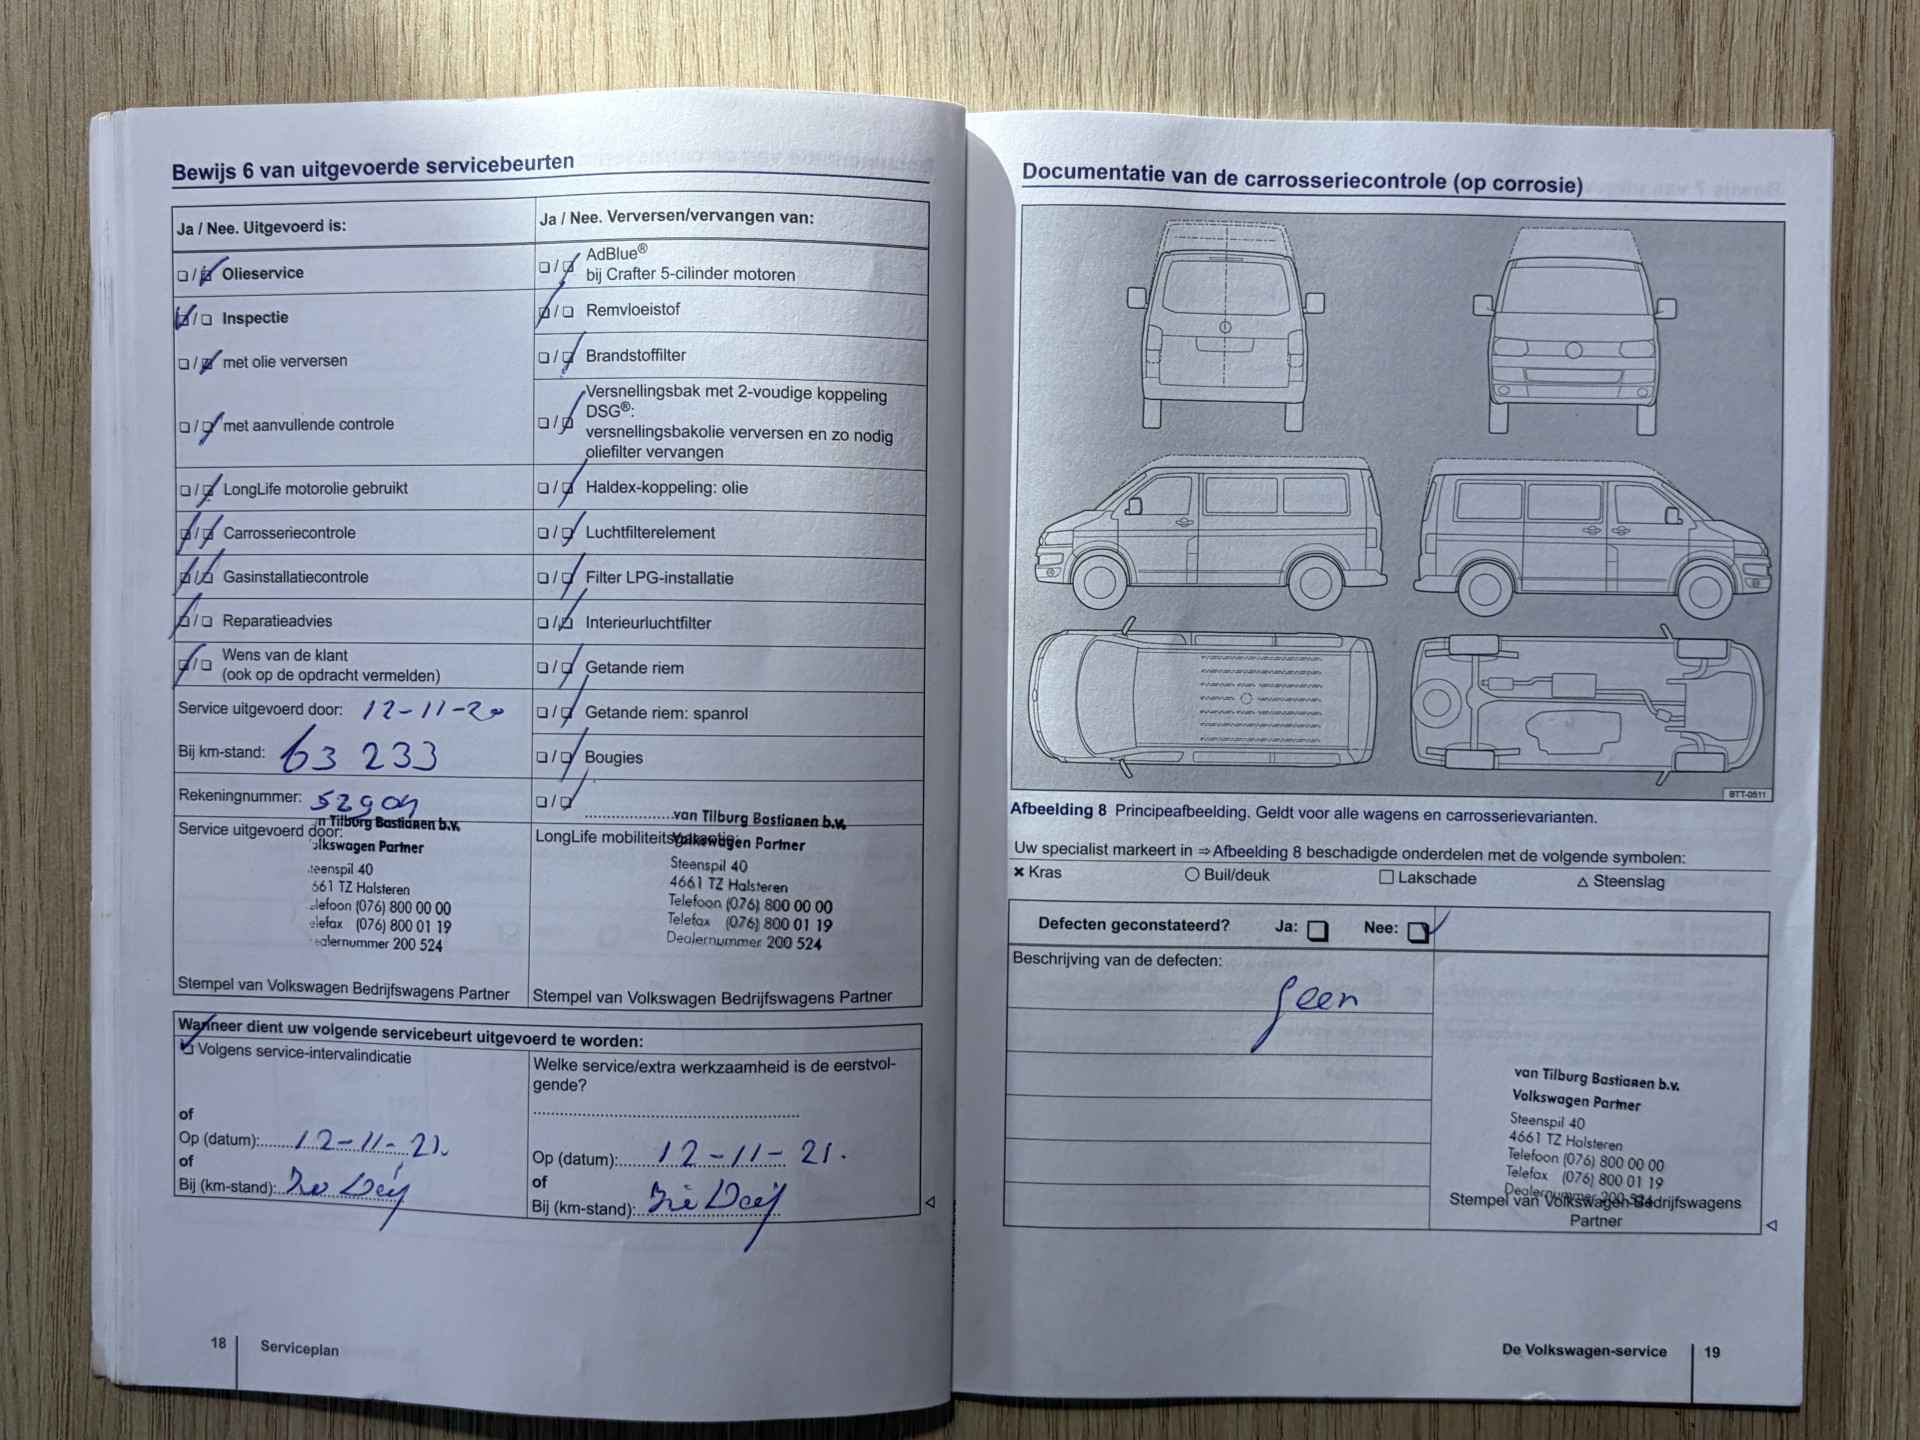 Bewijs 6 van uitgevoerde servicebeurten
Ja / Nee. Uitgevoerd is:
Olieservice
Inspectie
met olie verversen
met aanvullende controle
LongLife motorolie gebruikt
Carrosseriecontrole
Gasinstallatiecontrole
Reparatieadvies
Wens van de klant
(ook op de opdracht vermelden)
Service uitgevoerd door: 12-11-20
Bij km-stand: 63 233
Rekeningnummer:
Service uitgevoerd door:
Tilburg Bastianen b.v.
Volkswagen Partner
Steenspil 40
4661 TZ Halsteren
Telefoon (076) 800 00 00
Telefax (076) 800 01 19
Dealernummer 200 524
Stempel van Volkswagen Bedrijfswagens Partner
Ja / Nee. Verversen/vervangen van:
AdBlue®
bij Crafter 5-cilinder motoren
Remvloeistof
Brandstoffilter
Versnellingsbak met 2-voudige koppeling
DSG®:
versnellingsbakolie verversen en zo nodig
oliefilter vervangen
Haldex-koppeling: olie
Luchtfilterelement
Filter LPG-installatie
Interieurluchtfilter
Getande riem
Getande riem: spanrol
Bougies
van Tilburg Bastianen b.v.
LongLife mobiliteitsgarantie:
Volkswagen Partner
Steenspil 40
4661 TZ Halsteren
Telefoon (076) 800 00 00
Telefax (076) 800 01 19
Dealernummer 200 524
Stempel van Volkswagen Bedrijfswagens Partner
Wanneer dient uw volgende servicebeurt uitgevoerd te worden:
Volgens service-intervalindicatie
of
Op (datum): 12-11-21.
of
Bij (km-stand):
Welke service/extra werkzaamheid is de eerstvol-
gende?
Op (datum): 12-11-21.
of
Bij (km-stand):
18 Serviceplan
Documentatie van de carrosseriecontrole (op corrosie)
BTT-0511
Afbeelding 8 Principeafbeelding. Geldt voor alle wagens en carrosserievarianten.
Uw specialist markeert in ⇒ Afbeelding 8 beschadigde onderdelen met de volgende symbolen:
× Kras ○ Buil/deuk □ Lakschade △ Steenslag
Defecten geconstateerd? Ja: Nee:
Beschrijving van de defecten:
geen
van Tilburg Bastianen b.v.
Volkswagen Partner
Steenspil 40
4661 TZ Halsteren
Telefoon (076) 800 00 00
Telefax (076) 800 01 19
Dealernummer 200 524
Stempel van Volkswagen Bedrijfswagens
Partner
De Volkswagen-service 19